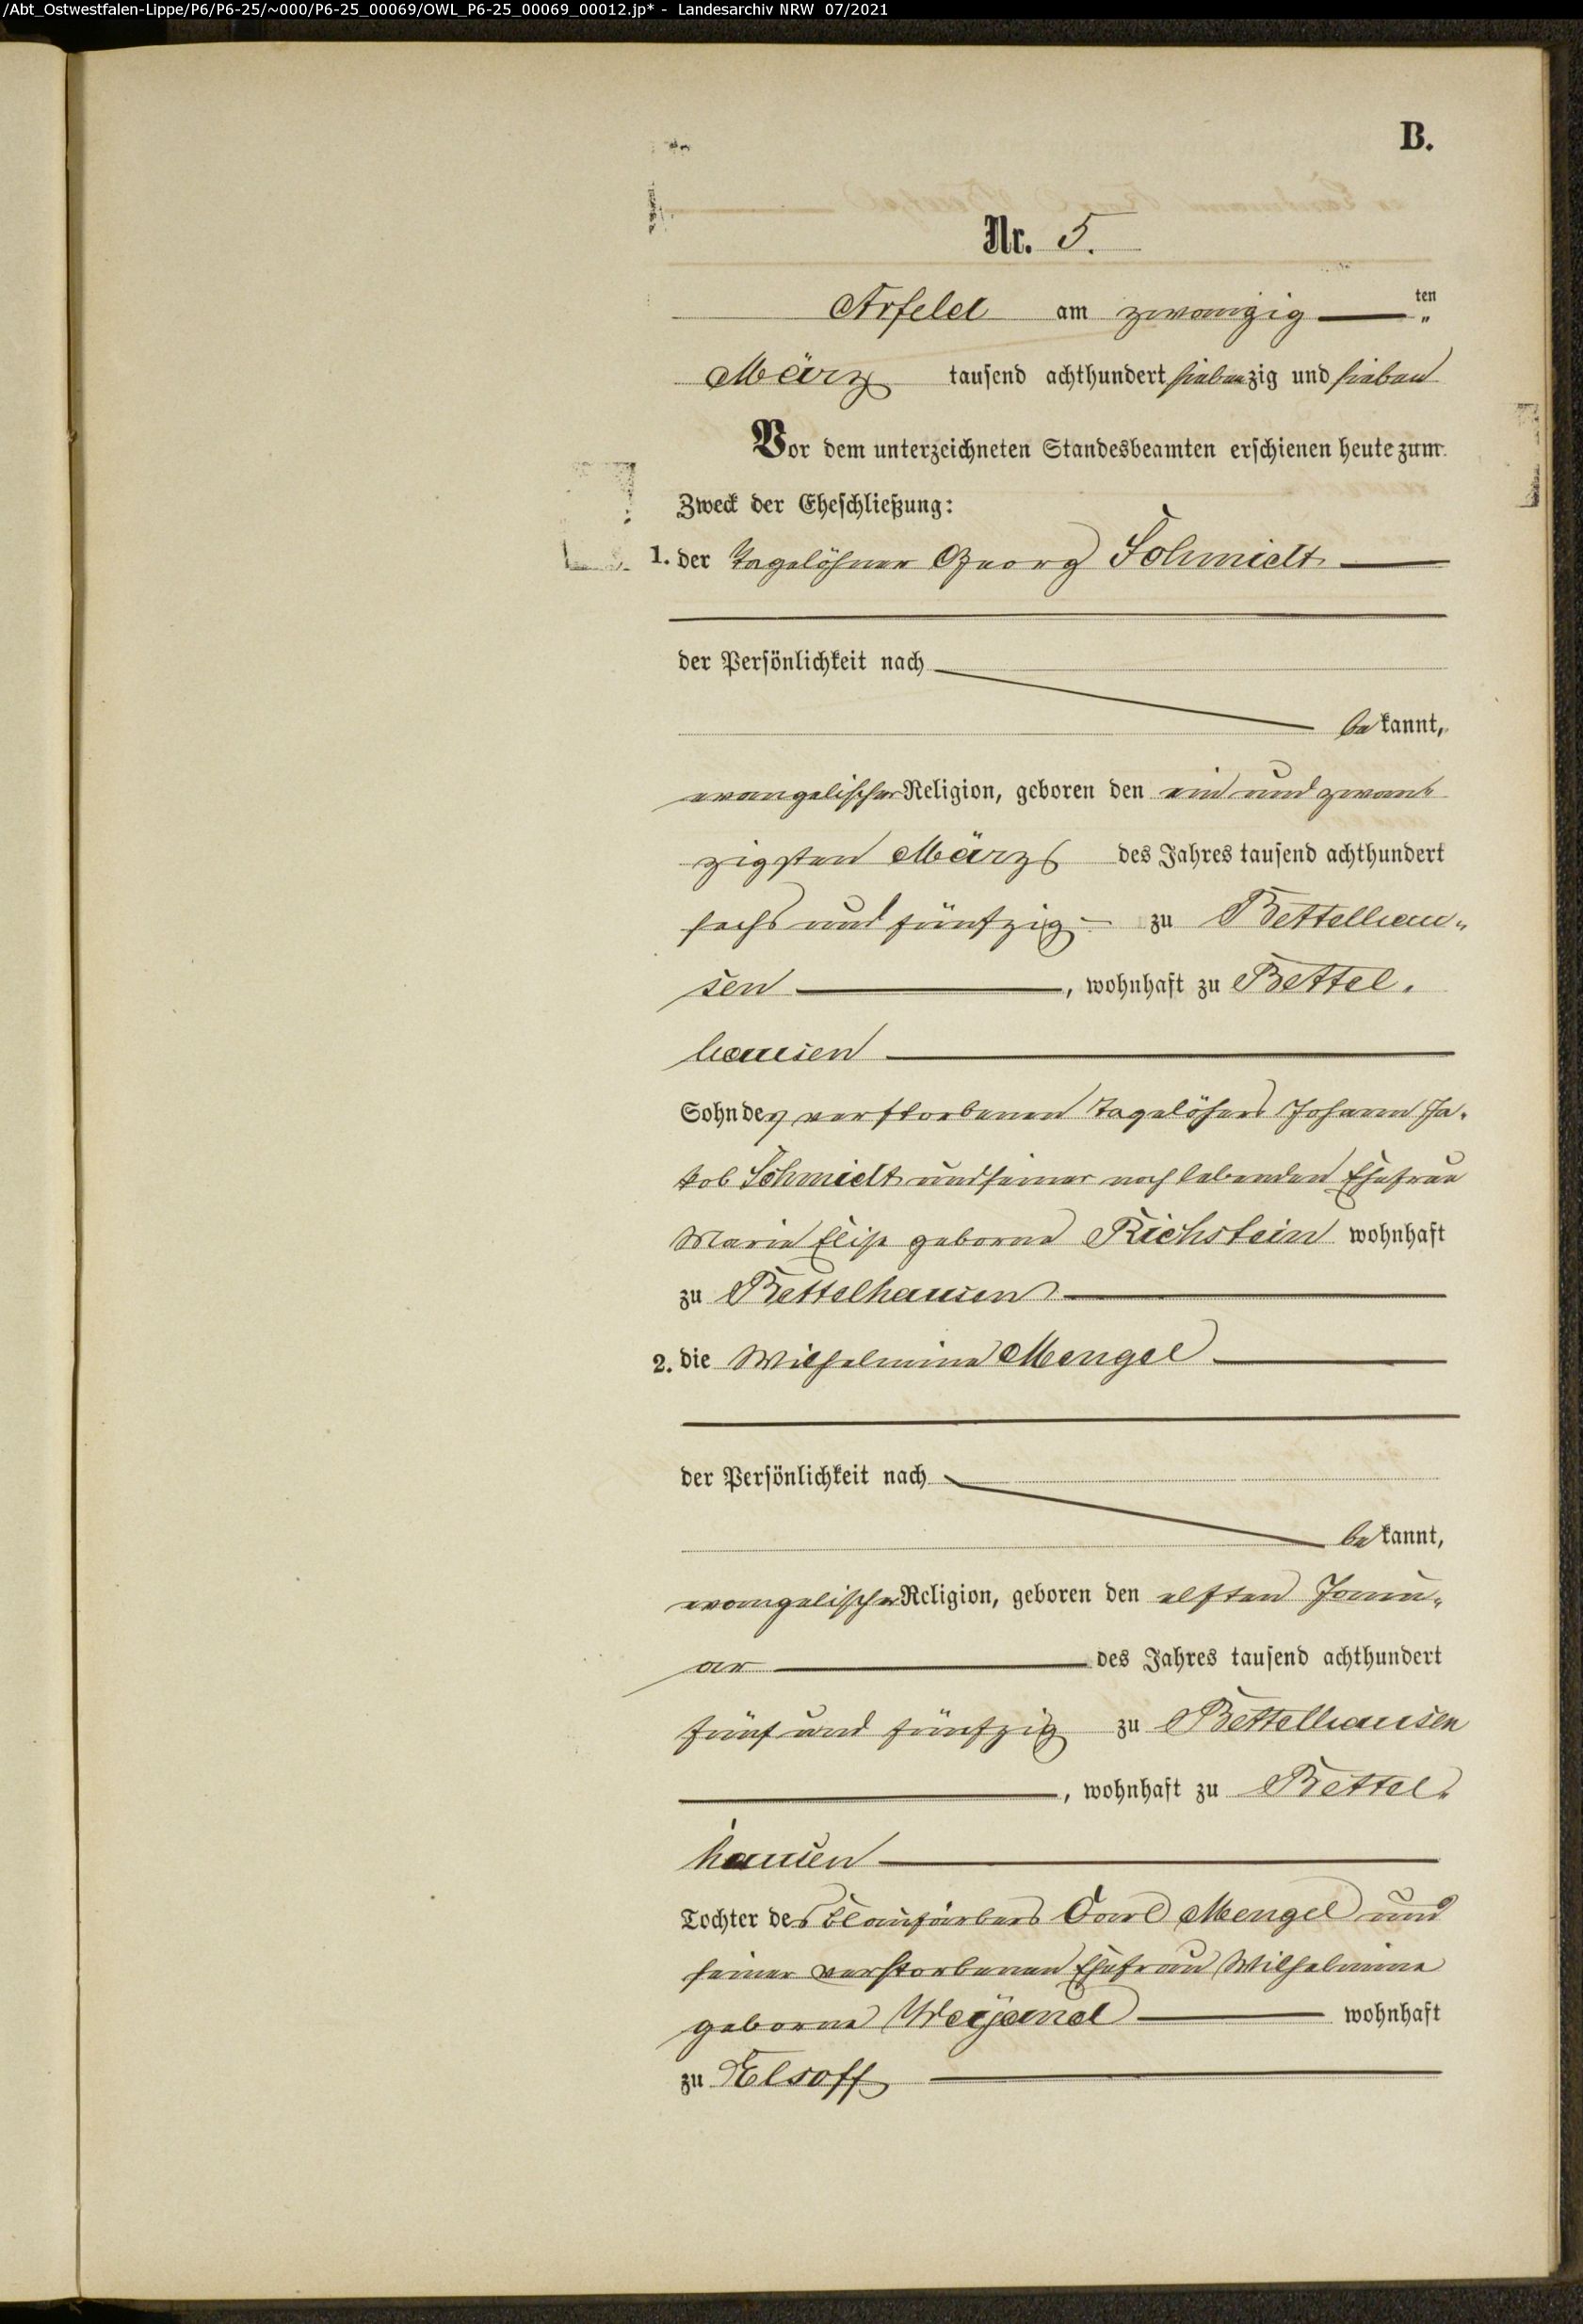 /Abt_Ostwestfalen-Lippe/P6/P6-25/~000/P6-25_00069/OWL_P6-25_00069_00012.jp* - Landesarchiv NRW 07/2021
B.
Nr. 5.
Arfeld am zwanzig ten "
März tausend achthundert siebenzig und sieben
Vor dem unterzeichneten Standesbeamten erschienen heute zum
Zweck der Eheschließung:
1. der Tagelöhner Georg Schmidt
der Persönlichkeit nach
bekannt,
evangelischer Religion, geboren den ein und zwan-
zigsten März des Jahres tausend achthundert
sechs und fünfzig zu Bettelhau-
sen, wohnhaft zu Bettel-
hausen
Sohn des verstorbenen Tagelöhers Johann Ja-
kob Schmidt und seiner noch lebenden Ehefrau
Marie Elise geborne Richstein wohnhaft
zu Bettelhausen
2. die Wilhelmine Mengel
der Persönlichkeit nach
bekannt,
evangelischer Religion, geboren den elften Janu-
ar des Jahres tausend achthundert
fünf und fünfzig zu Bettelhausen
, wohnhaft zu Bettel-
hausen
Tochter des Blaufärbers Carl Mengel und
seiner verstorbenen Ehefrau Wilhelmine
geborne wohnhaft
zu Elsoff